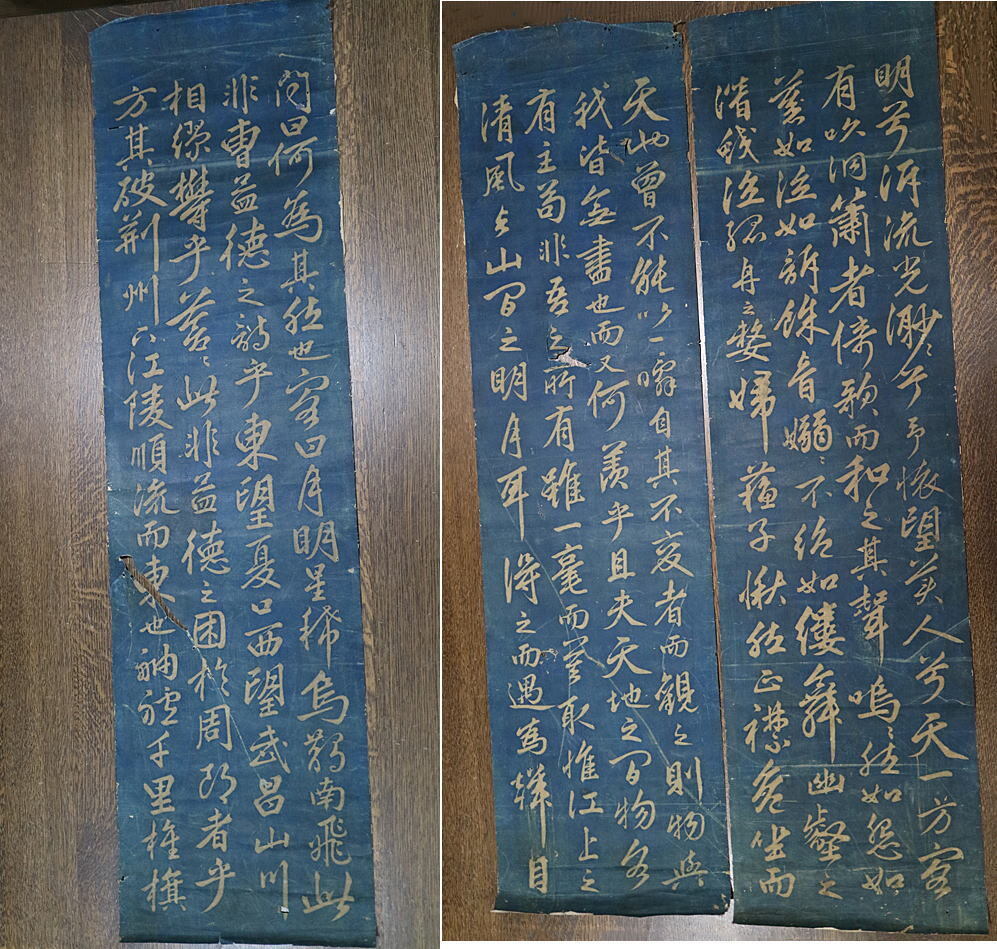 明兮泝流光渺々兮予懷望美人兮天一方客
有吹洞簫者倚歌而和之其聲嗚々然如怨如
慕如泣如訴餘音嫋々不絕如縷舞幽壑之
潛蛟泣孤舟之嫠婦蘇子愀然正襟危坐而
問曰何為其然也客曰月明星稀烏鵲南飛此
非曹孟德之詩乎東望夏口西望武昌山川
相繆鬱乎蒼々此非孟德之困於周郎者乎
方其破荊州下江陵順流而東也舳艫千里旌旗
天地曾不能以一瞬自其不変者而觀之則物與
我皆無盡也而又何羨乎且夫天地之間物各
有主苟非吾之所有雖一毫而莫取惟江上之
清風与山間之明月耳得之而遇為聲目